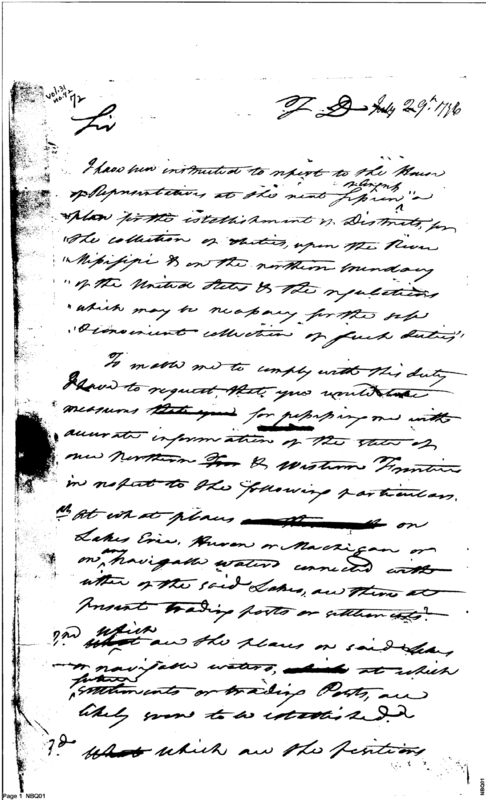 Vol. 31
No. 72
72
T D July 29th 1796
Sir
I have been instructed to report to the House
of Representatives at the next Session "a
"plan for the establishment of Districts, for
"the collection of duties, upon the River
"Missisippi & on the northern boundary
"of the United States & the regulations
"which may be necessary for the safe
"& convenient collection of such duties"
To enable me to comply with this duty
I have to request, that you would take
measures that you for possessing me with
accurate information of the state of
our Northern & Western Frontier
in respect to the following particulars.
1st At what places on
Lakes Erie, Huron or Machigan or
on any navigable waters connected with
either of the said Lakes, are there at
present trading posts or settlements?
2nd which
what are the places on said Lakes
or navigable waters, which at which
future
settlements or trading Posts, are
likely soon to be established?
3d What which are the positions
Page 1 NBQ01
NBQ01